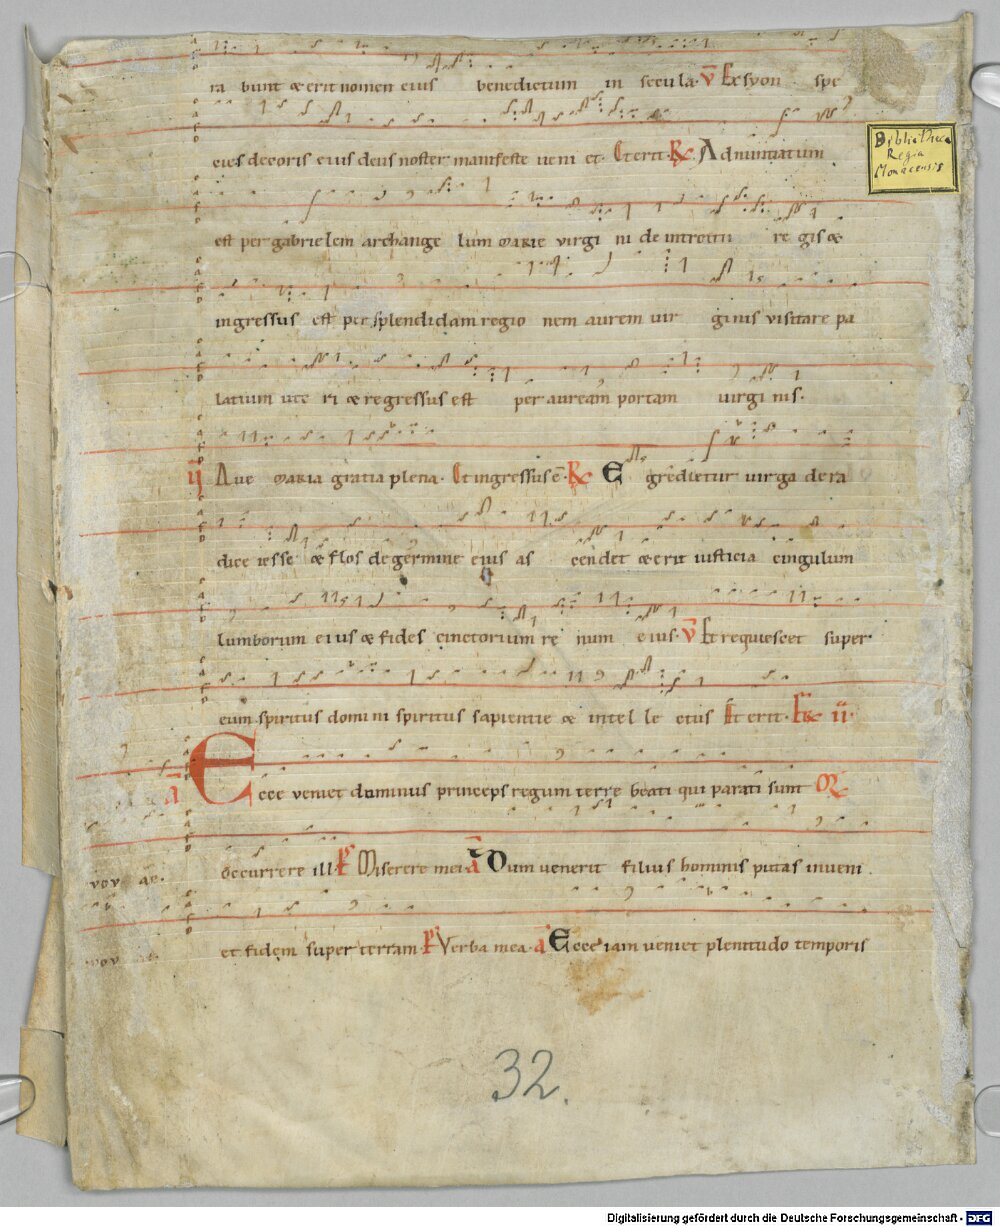 ra bunt & erit nomen eius benedictum in secula. V̄ Ex syon spe
cies decoris eius deus noster manifeste veni et. Et erit. R& Adnuntiatum
est per gabrielem archange lum MARIE virgi ni de introitu re gis &
ingressus est per splendidam regio nem aurem vir ginis visitare pa
latium ute ri & regressus est per auream portam virgi nis.
V̄ Ave MARIA gratia plena. Et ingressus ē. R& Egredietur virga de ra
dice iesse & flos de germine eius as cendet & erit iusticia cingulum
lumborum eius & fides cinctorium re num eius. V̄ Et requiescet super
eum spiritus domini spiritus sapientie & intel le ctus Et erit.
Ā Ecce veniet dominus princeps regum terre beati qui parati sunt
occurrere illi Miserere mei Ā Dum venerit filius hominis putas inveni
et fidem super terram Verba mea. Ā Ecce iam veniet plenitudo temporis
Bibliotheca
Regia
Monacensis
32.
Digitalisierung gefördert durch die Deutsche Forschungsgemeinschaft - DFG